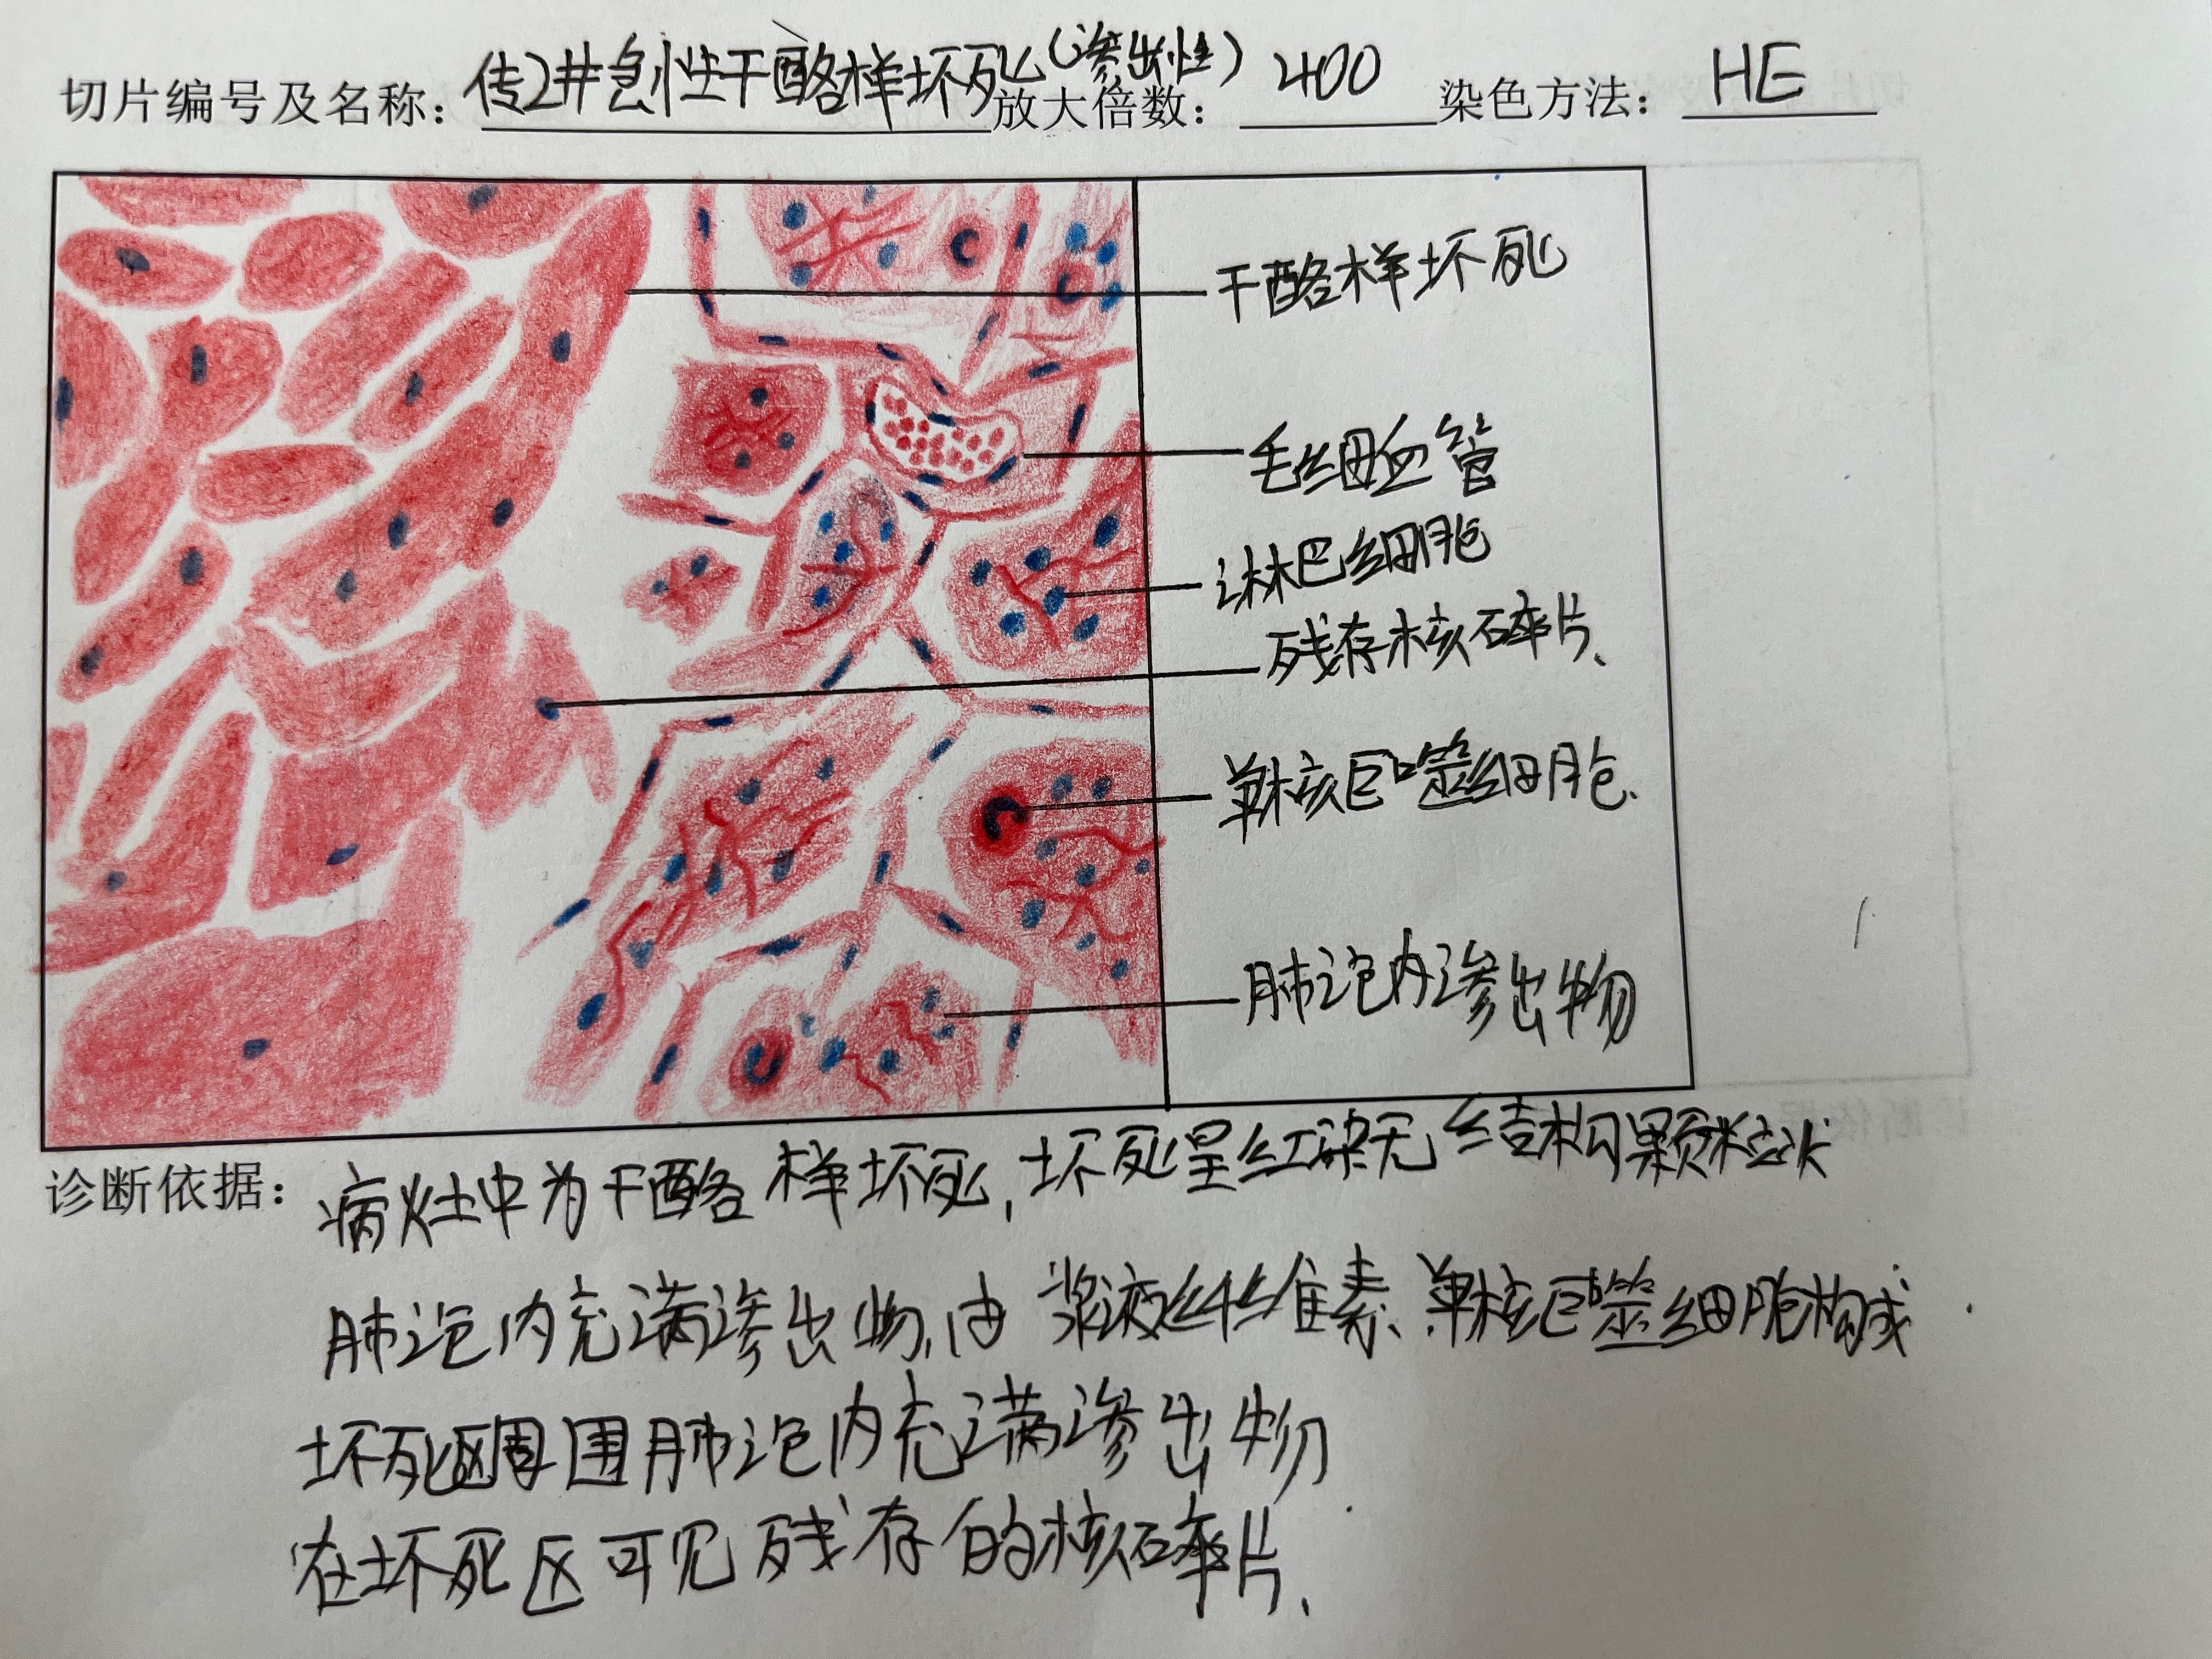 切片编号及名称：传2#急性干酪样坏死（渗出性） 放大倍数：400 染色方法：HE
干酪样坏死
毛细血管
淋巴细胞
残存核碎片、
单核巨噬细胞.
肺泡内渗出物
诊断依据：病灶中为干酪样坏死，坏死呈红染无结构颗粒状
肺泡内充满渗出物，由浆液纤维素、单核巨噬细胞构成.
坏死区周围肺泡内充满渗出物.
在坏死区可见残存的核碎片.